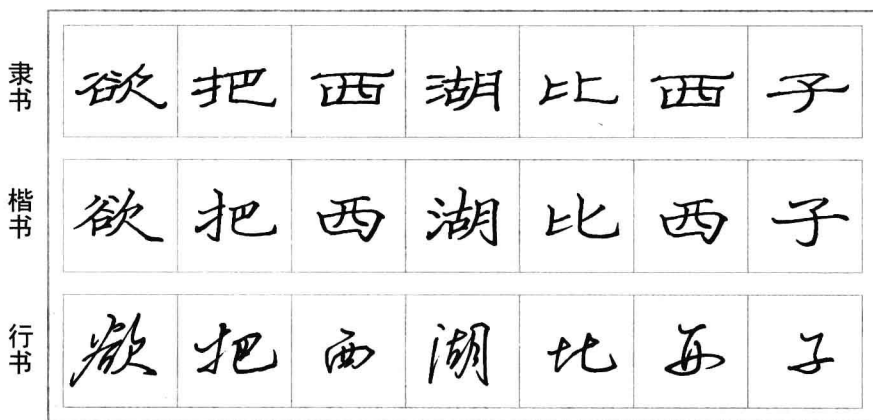 隶书 欲把西湖比西子
楷书 欲把西湖比西子
行书 欲把西湖比西子